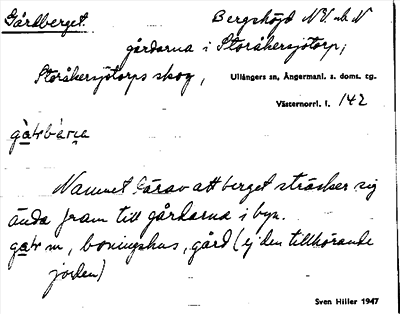 Gårdberget. Bergshöjd NV. o. N
gårdarna i Storåkersjötorp,
Storåkersjötorps skog,
Ullångers sn, Ångermanl. s. doms. tg.
Västernorrl. l. 142
Namnet härav att berget sträcker sig
ända fram till gårdarna i byn.
m, boningshus, gård (ej den tillhörande
jorden)
Sven Hiller 1947